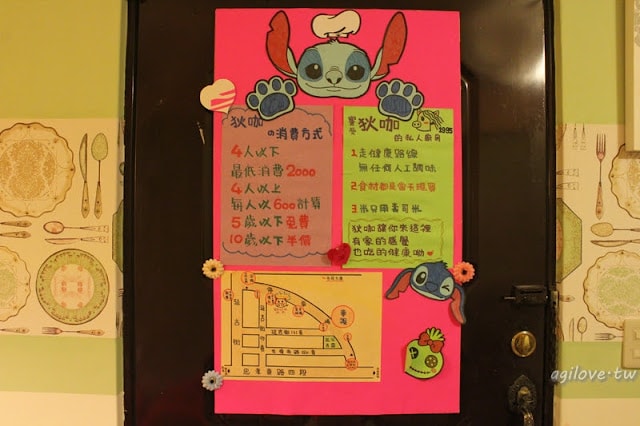 狄咖
の消費方式
4人以下
最低消費2000
4人以上
每人以600計算
5歲以下免費
10歲以下半價
狄咖
1995
的私人廚房
1.走健康路線
無任何人工調味
2.食材都是當天現買
3.米只用壽司米
狄咖讓你來這裡
有家的感覺
也吃的健康呦
延吉街
市民大道
忠孝東路四段
agilove.tw